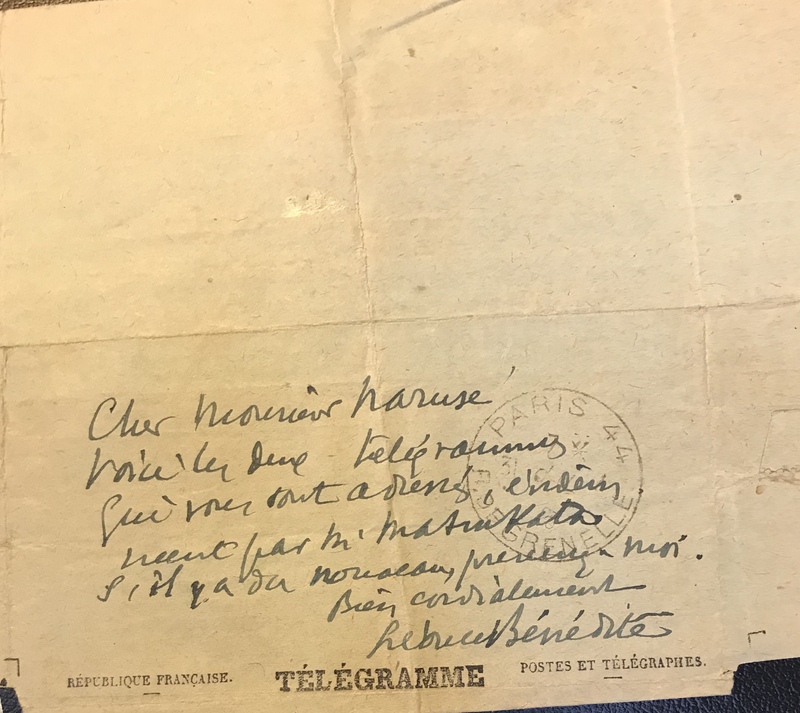 Cher Monsieur Naruse
Voici les deux télégrammes
qui vous sont adressés, évidem
ment par Mr Matsukata
S'il y a du nouveau, prévenez-moi.
Bien cordialement
Léonce Bénédite
PARIS 44
R. DE GRENELLE
RÉPUBLIQUE FRANÇAISE.
TÉLÉGRAMME
POSTES ET TÉLÉGRAPHES.